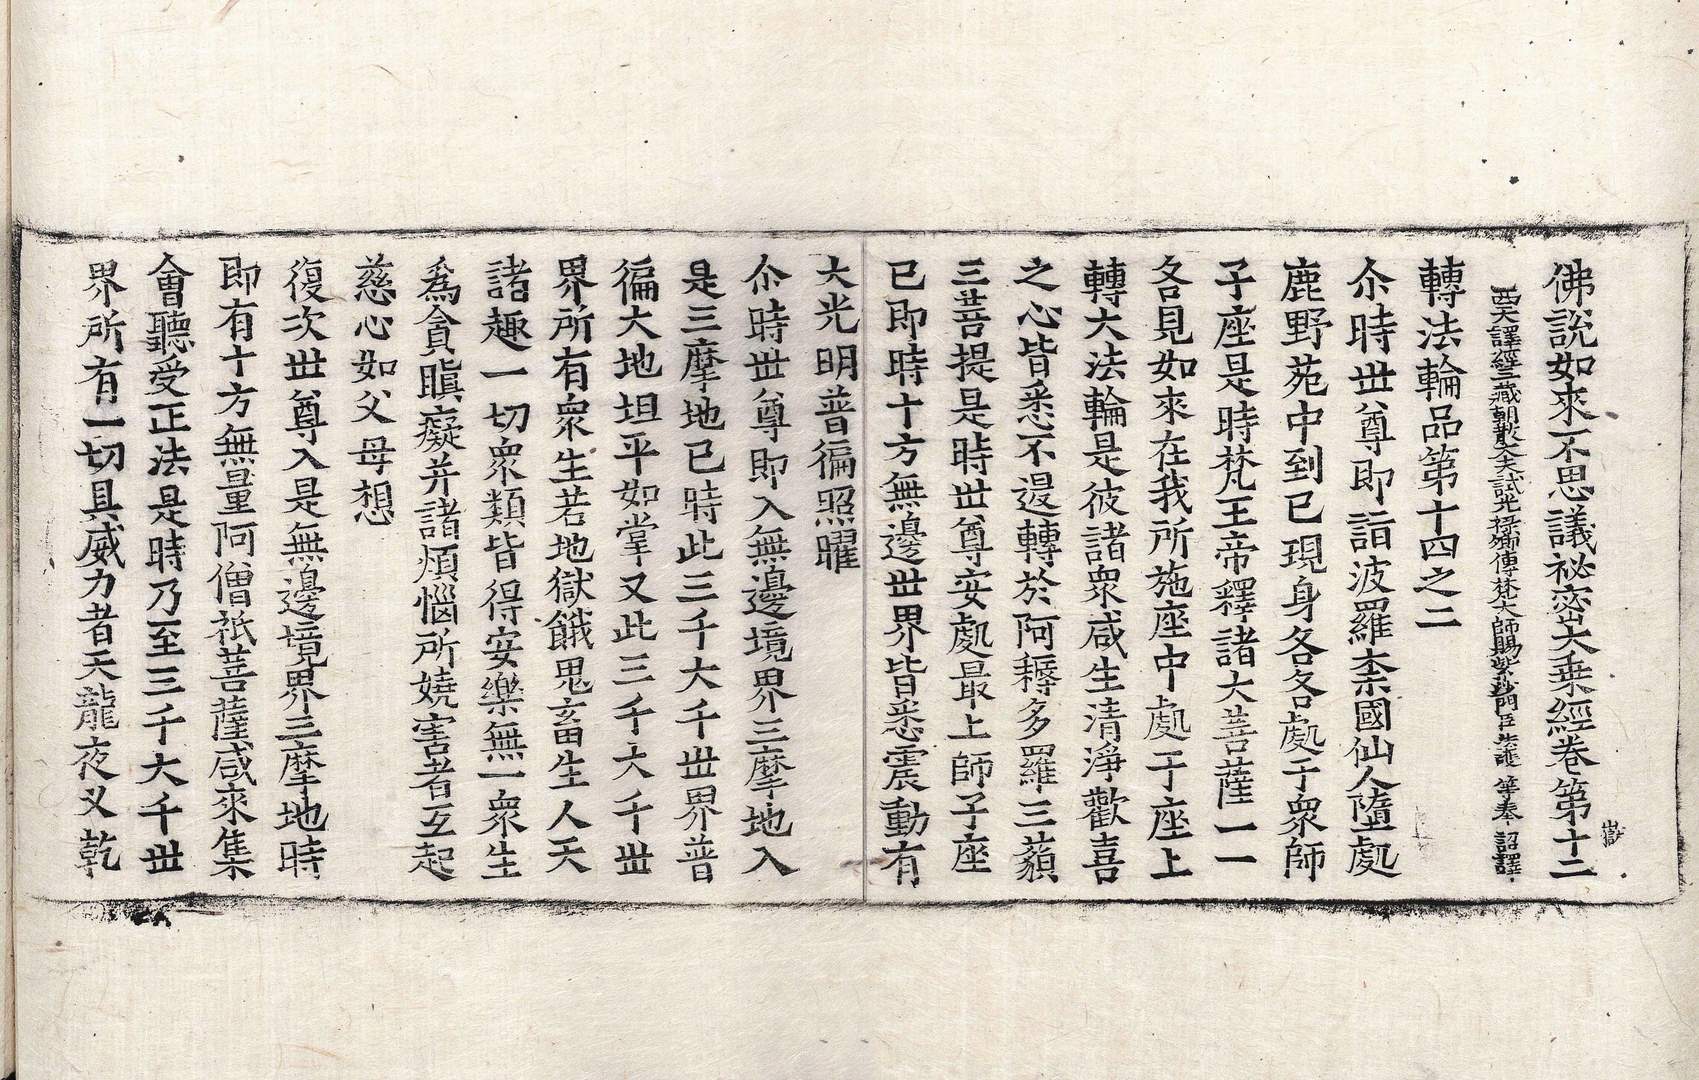 佛說如來不思議祕密大乘經卷第十二
西天譯經三藏朝散大夫試光祿卿傳梵大師賜紫沙門臣法護等奉 詔譯
轉法輪品第十四之二
尒時世尊即詣波羅柰國仙人墮處
鹿野苑中到已現身各各處于衆師
子座是時梵王帝釋諸大菩薩一一
各見如來在我所施座中處于座上
轉大法輪是彼諸衆咸生清淨歡喜
之心皆悉不退轉於阿耨多羅三藐
三菩提是時世尊安處最上師子座
已即時十方無邊世界皆悉震動有
大光明普徧照曜
尒時世尊即入無邊境界三摩地入
是三摩地已時此三千大千世界普
徧大地坦平如掌又此三千大千世
界所有衆生若地獄餓鬼畜生人天
諸趣一切衆類皆得安樂無一衆生
爲貪瞋癡并諸煩惱所嬈害者互起
慈心如父母想
復次世尊入是無邊境界三摩地時
即有十方無量阿僧祇菩薩咸來集
會聽受正法是時乃至三千大千世
界所有一切具威力者天龍夜叉乾